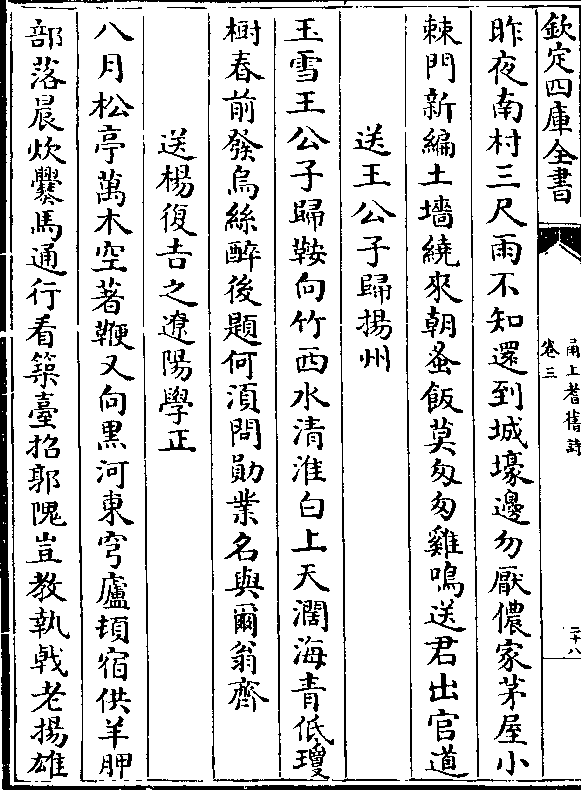 欽定四庫全書
甬上耆舊詩
卷三
二十八
昨夜南村三尺雨不知還到城壕邊勿厭儂家茅屋小
棘門新編土墻繞來朝蚤飯莫匆匆雞鳴送君出官道
送王公子歸揚州
玉雪王公子歸鞍向竹西水清淮白上天濶海青低瓊
樹春前發烏絲醉後題何須問勛業名與爾翁齊
送楊復吉之遼陽學正
八月松亭萬木空著鞭又向黒河東穹廬頓宿供羊胛
部落晨炊爨馬通行看築臺招郭隗豈教執戟老揚雄